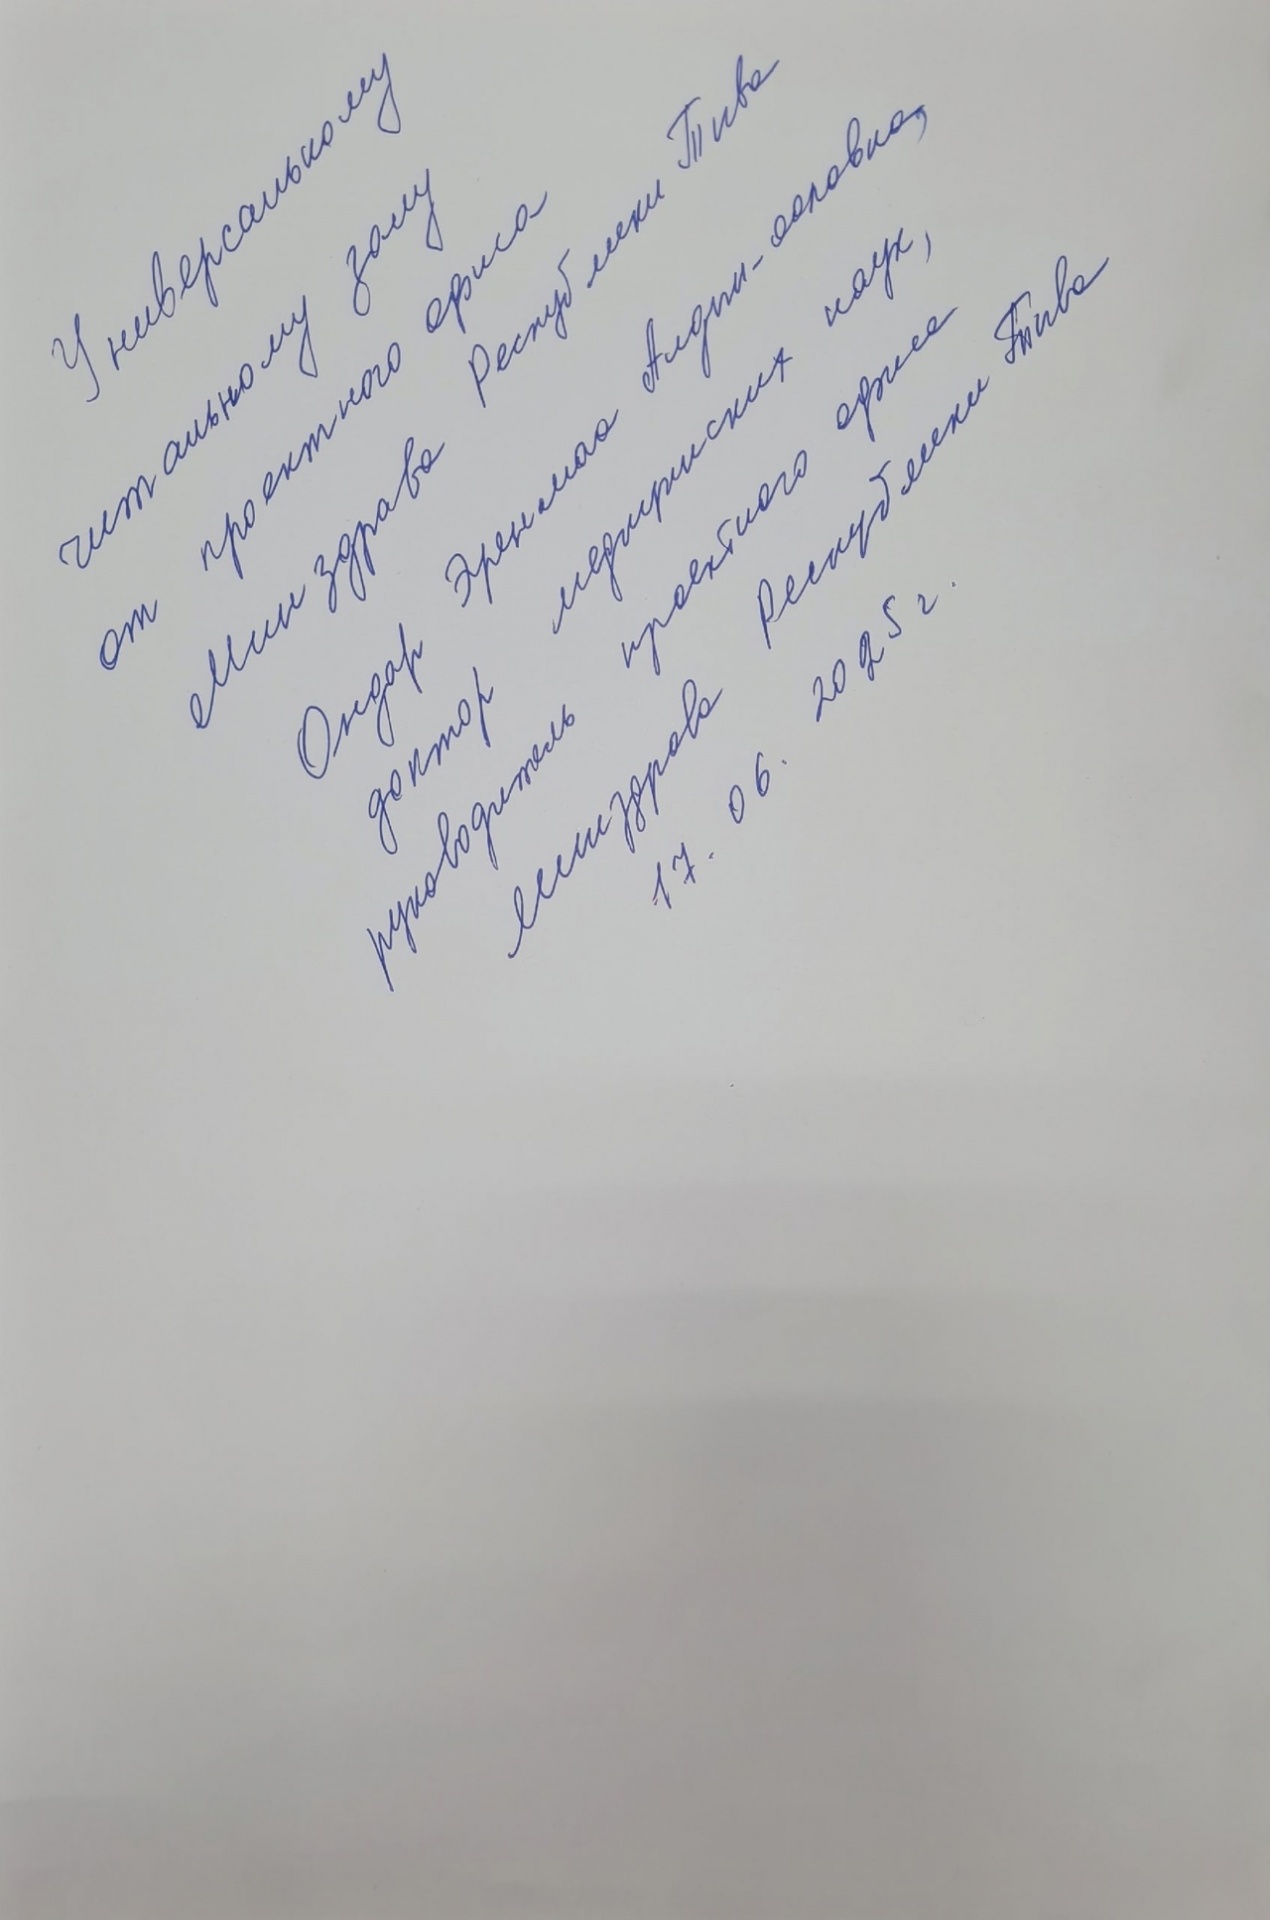 Универсальному
читальному залу
от проектного офиса
Минздрава Республики Тыва
Ондар Эренмаа Алдын-ооловна,
доктор медицинских наук,
руководитель проектного офиса
Минздрава Республики Тыва
17.06.2025г.